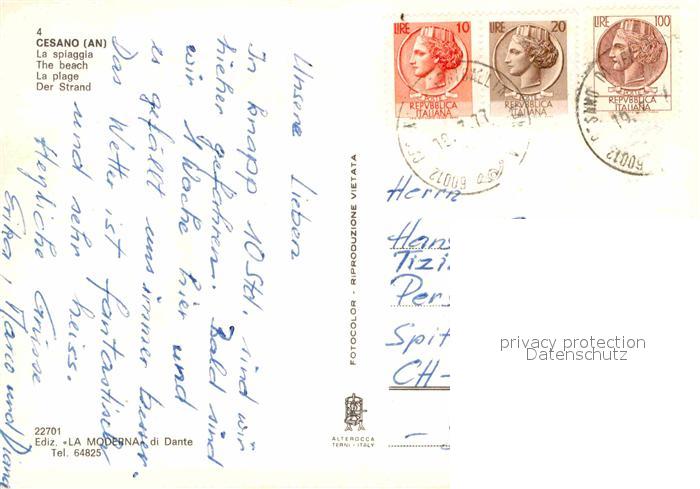 4
CESANO (AN)
La spiaggia
The beach
La plage
Der Strand
Unsere Lieben
In knapp 10 Std. sind wir
hieher gefahren. Bald sind
wir 1 Woche hier und
es gefällt uns immer besser.
Das Wetter ist fantastisch
und sehr heiss.
Herzliche Grüsse
Erika, Marco und Diana
22701
Ediz. «LA MODERNA» di Dante
Tel. 64825
FOTOCOLOR - RIPRODUZIONE VIETATA
ALTEROCCA
TERNI - ITALY
LIRE 10
REPVBBLICA
ITALIANA
LIRE 20
POSTE
REPVBBLICA
ITALIANA
LIRE 100
POSTE
REPVBBLICA
ITALIANA
60012
60012
Herrn
Hans
Tizi
Per
Spit
CH-
privacy protection
Datenschutz